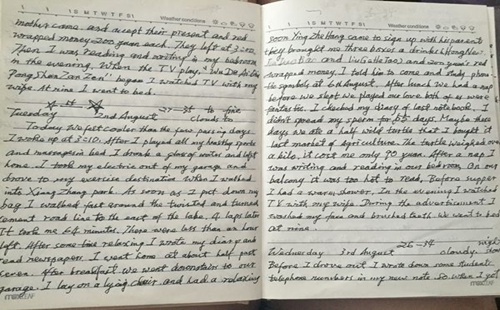 Weather conditions
mother came and accept their present and red
wrapped money 200 yuan each. They left at 3:20.
Then I was reading and writing in my bedroom
in the evening. When the TV play, "Wu De
Pang Shan Zan Zen" began I watched TV with my
wife. At nine I went to bed.
Tuesday 2nd August clouds to fine
Today. We felt cooler than the few passing days
I woke up at 3:10. After I played all my healthy sports
and massage in bed I drank a glass of water and left
home. I took my electric out of my garage and
drove to my exercise destination. When I walked
into Xiang Zhang park. As soon as I put down my
bag I walked fast around the twisted and turned
cement road line to the east of the lake. 4 laps later
It took me 64 minutes. There were less than an hour
left. After some time relaxing I wrote my diary and
read newspapers. I went home at about half past
seven. After breakfast we went downstairs to our
garage. I lay on a lying chair and had a relaxing
Weather conditions
soon Ying Ze Hang came to sign up with his parents
they brought me three boxes a drinker
and and 200 yuan's red
wrapped money. I told him to come and study phone
tic symbols at 6th August. After lunch We had a nap
before we slept we played me love both of us were
fantastic. I checked my diary of last notebook, I
didn't spread my sperm for days. Maybe these
days we ate a half wild turtle that I bought it
last market of agriculture. The turtle weighed over
a kilo, it cost me only 90 yuan. After a nap I
was writing and reading in our bedroom. On our
balcony it was too hot to read. Before supper
I had a warm shower. In the evening I watched
TV with my wife. During the advertisement I
washed my face and brushed teeth. We went to bed
at nine.
Wednesday 3rd August cloudy
Before I drove out I wrote down some students
telephone numbers in my new note. So when I got